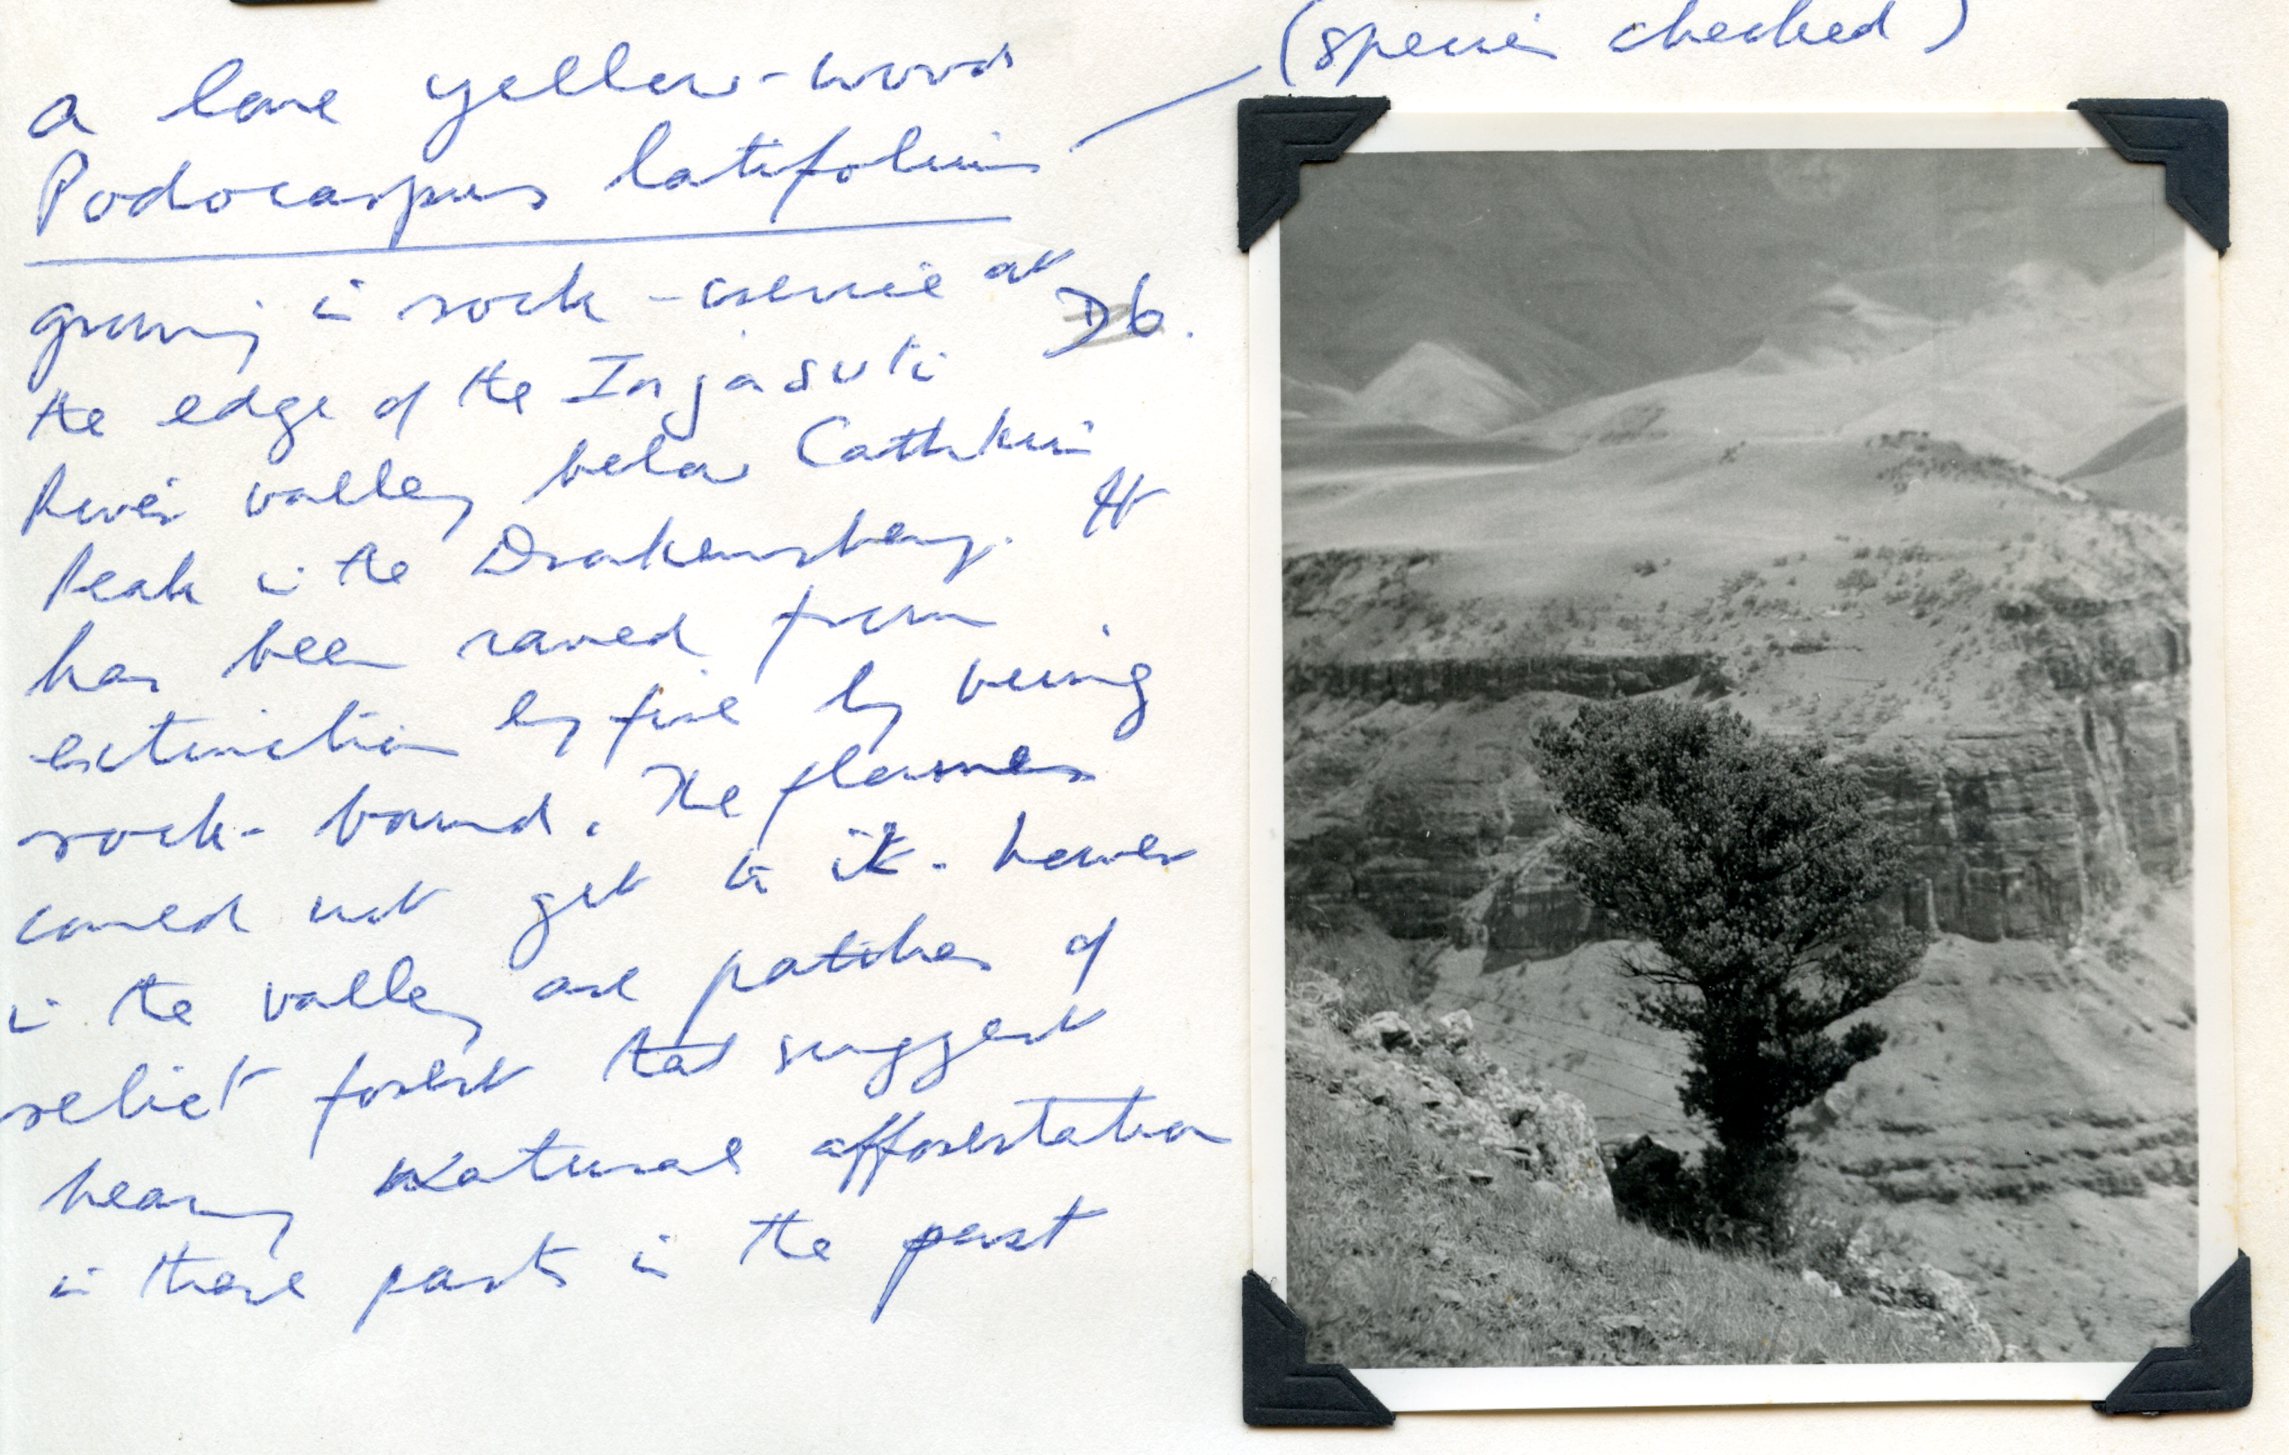 (species checked)
a lone yellow-wood
Podocarpus latifolius
growing in rock-crevice at
D6.
the edge of the Injasuti
River valley below Cathkin
Peak in the Drakensberg. It
has been saved from
extinction by fire by being
rock-bound. The flames
could not get to it. Lower
in the valley are patches of
relict forest that suggest
heavy natural afforestation
in these parts in the past